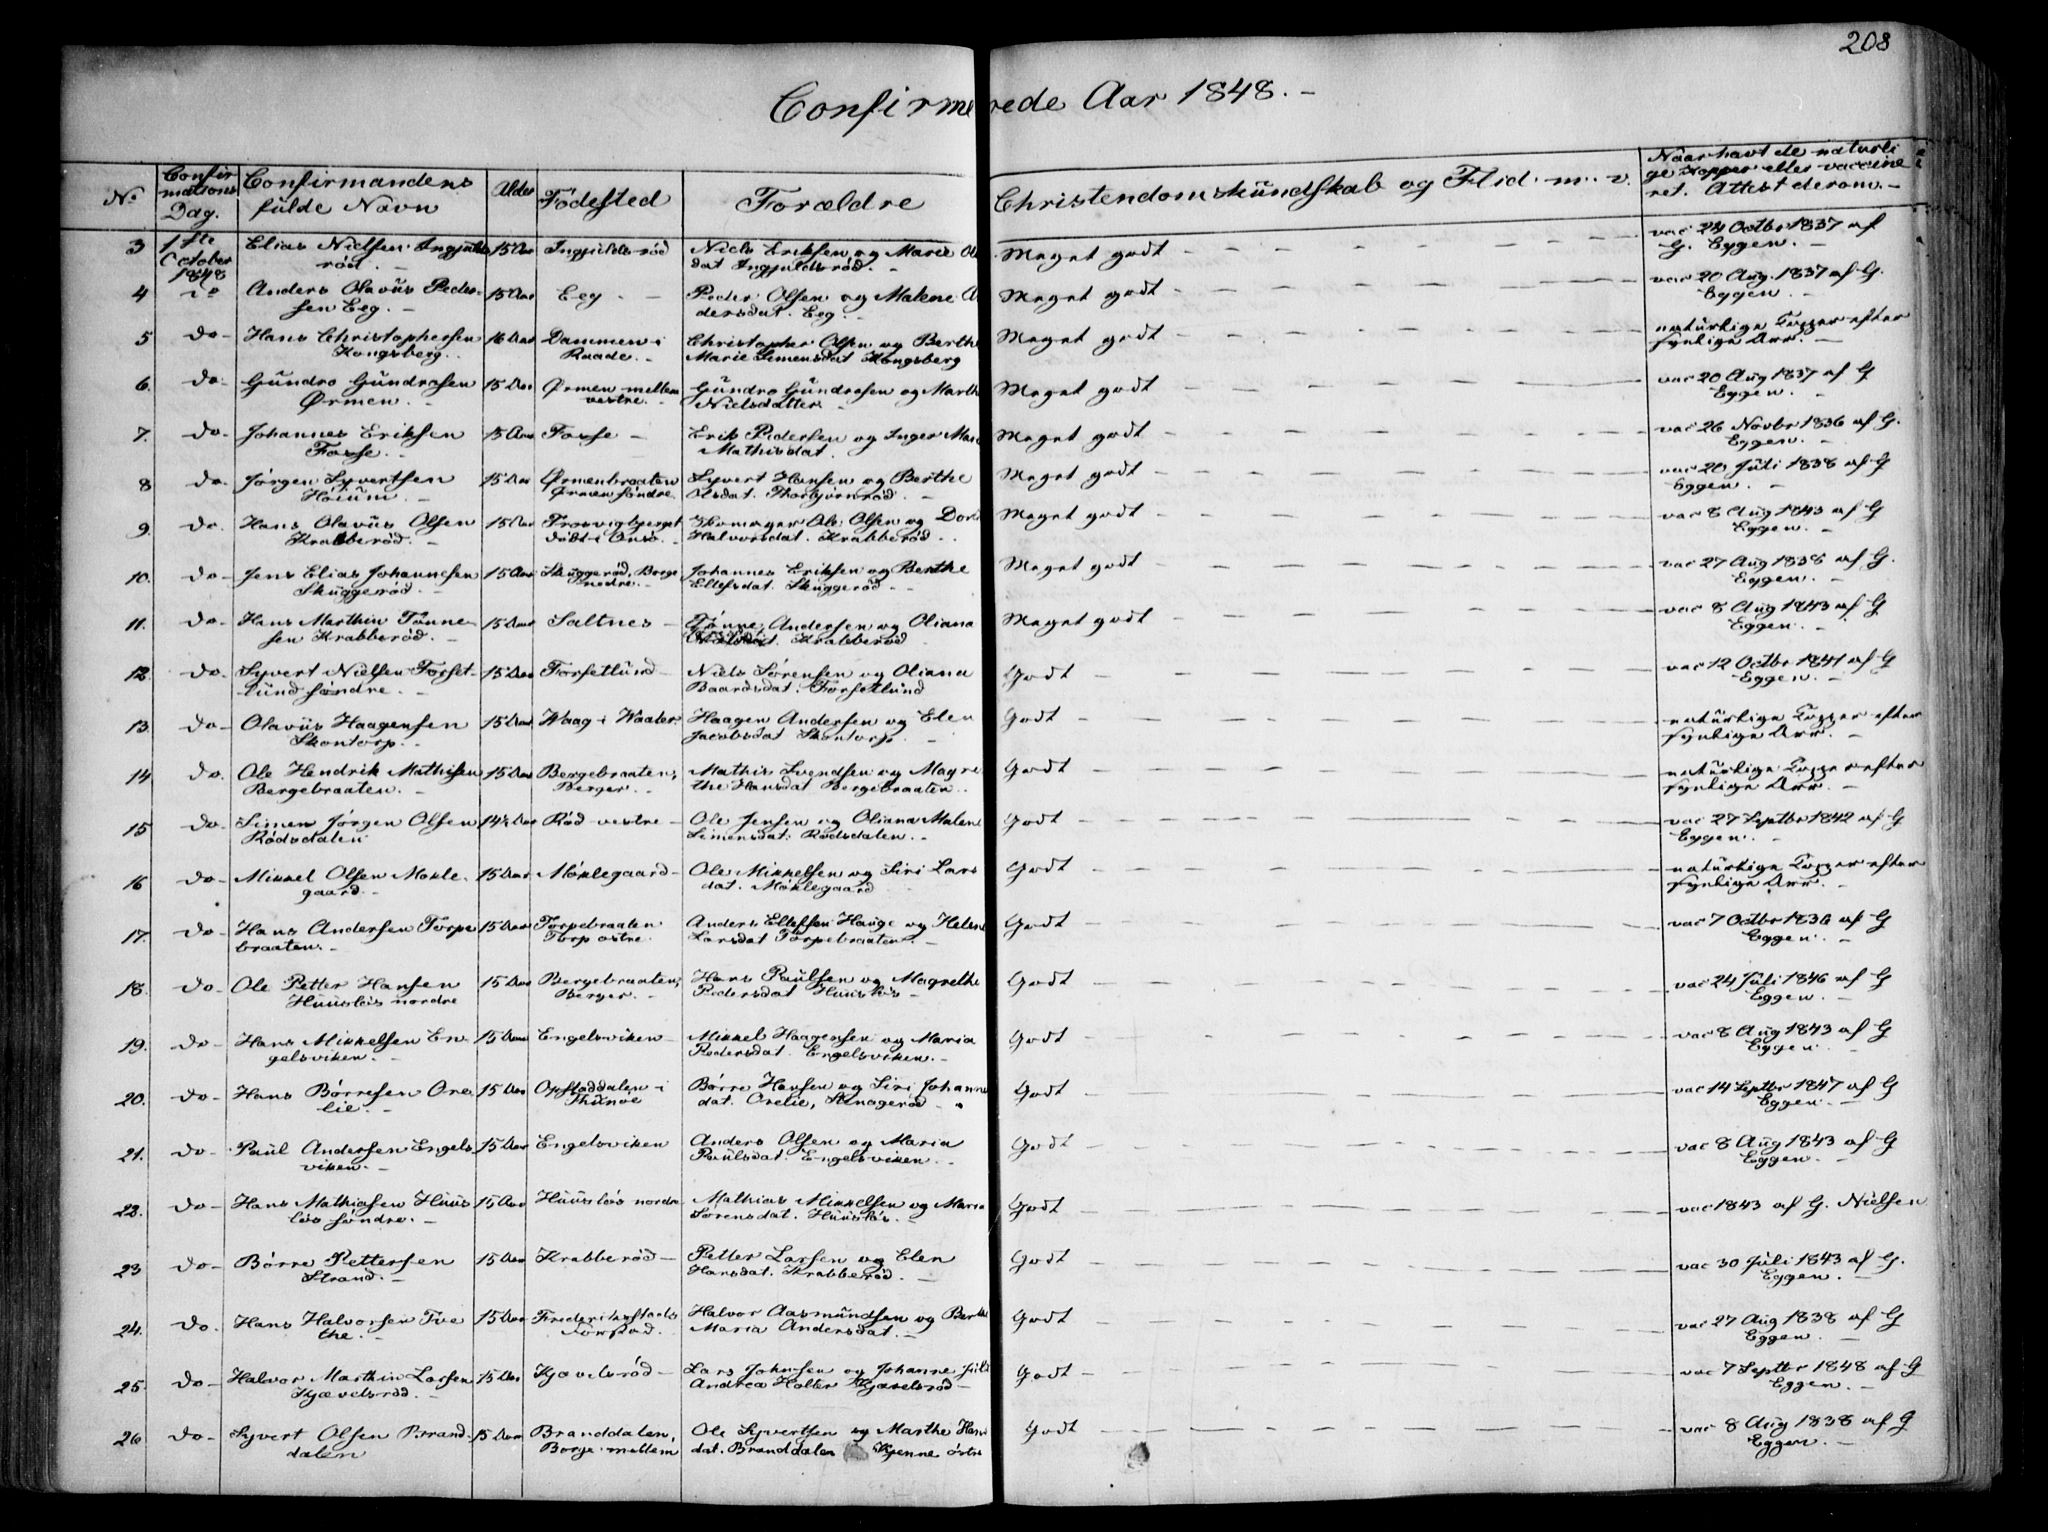 208
Confirmerede Aar 1848.
No.
Confir
mations
Dag.
Confirmandens
fulde Navn
Alder
Födested
Forældre
Christendomskundskab og Flid m. v.
Naar havt de naturli
ge Kopper eller vaccine
ret. Attest derom.
3 1ste Elias Nielsen Ingjulds 15 Aar Ingjuldsröd Niels Eriksen og Marie Ol Meget godt vac 24 Octbr 1837 af
October röd. dat Ingjuldsröd. G. Eggen.
1848
4 do Anders Olavüs Peder- 15 Aar Eeg Peder Olsen og Malene A Meget godt vac 20 Aug. 1837 af G.
sen Eeg. dersdat. Eeg. Eggen.
5 do Hans Christophersen 16 Aar Dammen i Christopher Olsen og Berthe Meget godt natürlige Kopper efter
Kongsberg. Raade. Marie Simensdat Kongsberg synlige Arr.
6. do Gündro Gündrosen 15 Aar Örmen mellem Gündro Gündrosen og Marth Meget godt vac 20 Aug 1837 af G
Örmen. vestre. Nielsdatter Eggen.
7. do Johannes Eriksen 15 Aar Fosse Erik Pedersen og Inger Mari Meget godt vac 26 Novbr 1836 af G.
Fosse. Mathisdat. Eggen.
8 do Jörgen Syvertsen 15 Aar Örmenbraaten Syvert Hansen og Berthe Meget godt vac 20 Juli 1838 af G
Höium. Örmen söndre. Olsdat. Thorbjörnröd. Eggen.
9. do. Hans Olavüs Olsen 15 Aar Trosvigbjerget Skomager Ole Olsen og Dort Meget godt vac 8 Aug 1843 af G
Krabberöd. döbt i Onsö. Halvorsdat. Krabberöd. Eggen.
10. do Jens Elias Johannesen 15 Aar Sküggeröd, Borge Johannes Eriksen og Berthe Meget godt vac 27 Aug 1838 af G.
Sküggeröd. nedre. Ellefsdat. Sküggeröd. Eggen.
11. do Hans Marthin Tönne 15 Aar Saltnes Tönne Andersen og Oliana Meget godt vac 8 Aug 1843 af G
sen Krabberöd. Krabberöd Eggen.
12. do Syvert Nielsen Torset- 15 Aar Torsetlund Niels Sörensen og Oliana Godt vac 12 Octbr 1841 af G
lund söndre. Baardsdat. Torsetlund Eggen.
13. do Olavüs Haagensen 15 Aar Waag i Waaler Haagen Andersen og Elen Godt natürlige Kopper efter
Skontorp. Jacobsdat Skontorp. synlige Arr.
14 do. Ole Hendrik Mathisen 15 Aar Bergebraaten, Mathis Svendsen og Magre Godt natürlige Kopper efter
Bergebraaten. Berger. the Hansdat Bergebraaten. synlige Arr.
15 do Simen Jörgen Olsen 14½ Aar Röd vestre Ole Jensen og Oliana Malene Godt vac 27 Septbr 1842 af G
Rödsdalen Simensdat. Rödsdalen. Eggen.
16 do Mikkel Olsen Mökle- 15 Aar Möklegaard Ole Mikkelsen og Siri Lars Godt natürlige Kopper efter
gaard. dat. Möklegaard synlige Arr.
17. do Hans Andersen Torpe 15 Aar Torpebraaten Anders Ellefsen Hauge og Helene Godt vac 7 Octbr 1836 af G
braaten. Torp östre. Larsdat Torpebraaten. Eggen.
18. do Ole Petter Hansen 15 Aar Bergebraaten, Hans Paulsen og Magrethe Godt vac 24 Juli 1846 af G
Hüüslös nordre Berger. Pedersdat Hüüslös Eggen.
19. do Hans Mikkelsen En- 15 Aar Engelsviken Mikkel Haagensen og Maria Godt vac 8 Aug 1843 af G
gelsviken. Pedersdat. Engelsviken. Eggen.
20. do Hans Börresen Ore 15 Aar Opstaddalen i Börre Hansen og Siri Johanne Godt vac 14 Septbr 1847 af G
lie. Thünöe dat. Orelie, Eggen.
21. do Paul Andersen Engels 15 Aar Engelsviken Anders Olsen og Maria Godt vac 8 Aug 1843 af G
viken. Paulsdat. Engelsviken. Eggen.
22. do Hans Mathiasen Hüüs 15 Aar Hüüslös nordre Mathias Mikkelsen og Maria Godt vac 1843 af G. Nielsen
lös söndre. Sörensdat. Hüüslös.
23 do Börre Pettersen 15 Aar Krabberöd Petter Larsen og Elen Godt vac 30 Juli 1843 af G.
Strand. Hansdat. Krabberöd. Eggen.
24. do. Hans Halvorsen Tve 15 Aar Frederikstads Halvor Aasmündsen og Berthe Godt vac 27 Aug 1838 af G
the. Forstad. Maria Andersdat. Eggen.
25. do Halvor Marthin Larsen 15 Aar Kjævelsröd Lars Johnsen og Johanne Juli Godt vac 7 Septbr 1848 af G
Kjævelsröd. Andrea Holter Kjævelsröd Eggen.
26 do Syvert Olsen Brand- 15 Aar Branddalen, Ole Syvertsen og Marthe Hans Godt vac 8 Aug 1838 af G
dalen Borge mellem dat. Branddalen Kjenne östre Eggen.